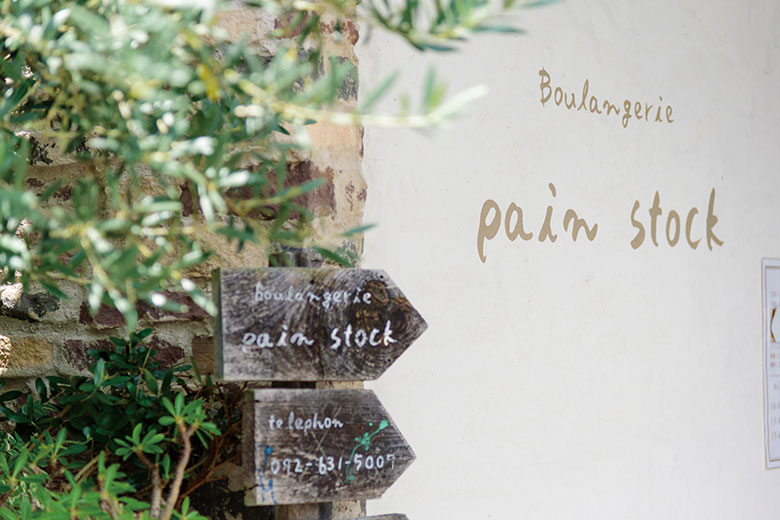 Boulangerie
pain stock
boulangerie
pain stock
telephon
092-631-5007